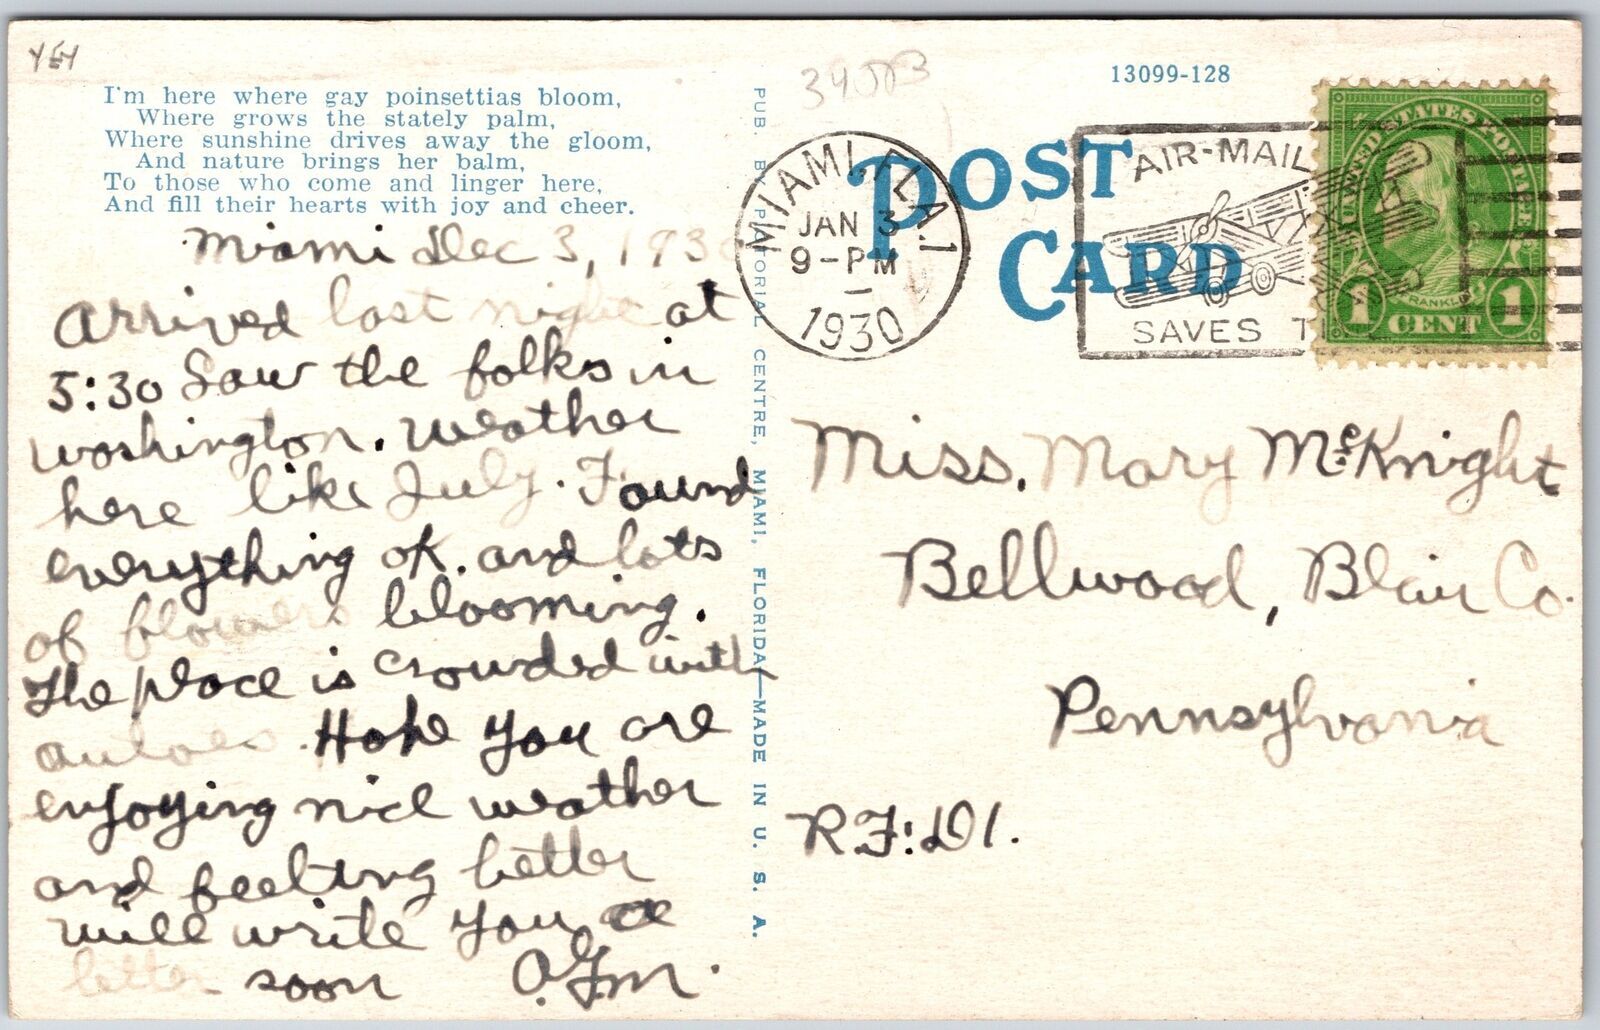 I'm here where gay poinsettias bloom,
Where grows the stately palm,
Where sunshine drives away the gloom,
And nature brings her balm,
To those who come and linger here,
And fill their hearts with joy and cheer.
Miami Dec 3, 1930
Arrived last night at
5:30 Saw the folks in
Washington. Weather
here like July. Found
everything ok. and lots
of flowers blooming.
The place is crowded with
autoes. Hope you are
enjoying nice weather
and feeling better
will write you a
letter soon O.G.M.
PUB. BY PICTORIAL CENTRE, MIAMI, FLORIDA—MADE IN U. S. A.
13099-128
POST
CARD
MIAMI, FLA. 1
JAN 3
9-PM
1930
AIR-MAIL
SAVES
UNITED STATES POSTAGE
FRANKLIN
1 CENT 1
Miss. Mary McKnight
Bellwood, Blair Co.
Pennsylvania
R.F.D 1.